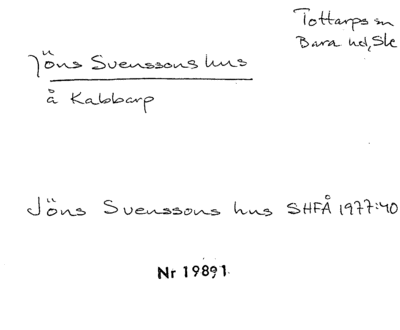 Tottarps sn
Bara hd, Sk
Jöns Svenssons hus
å Kabbarp
Jöns Svenssons hus SHFÅ 1977:40
Nr 19891